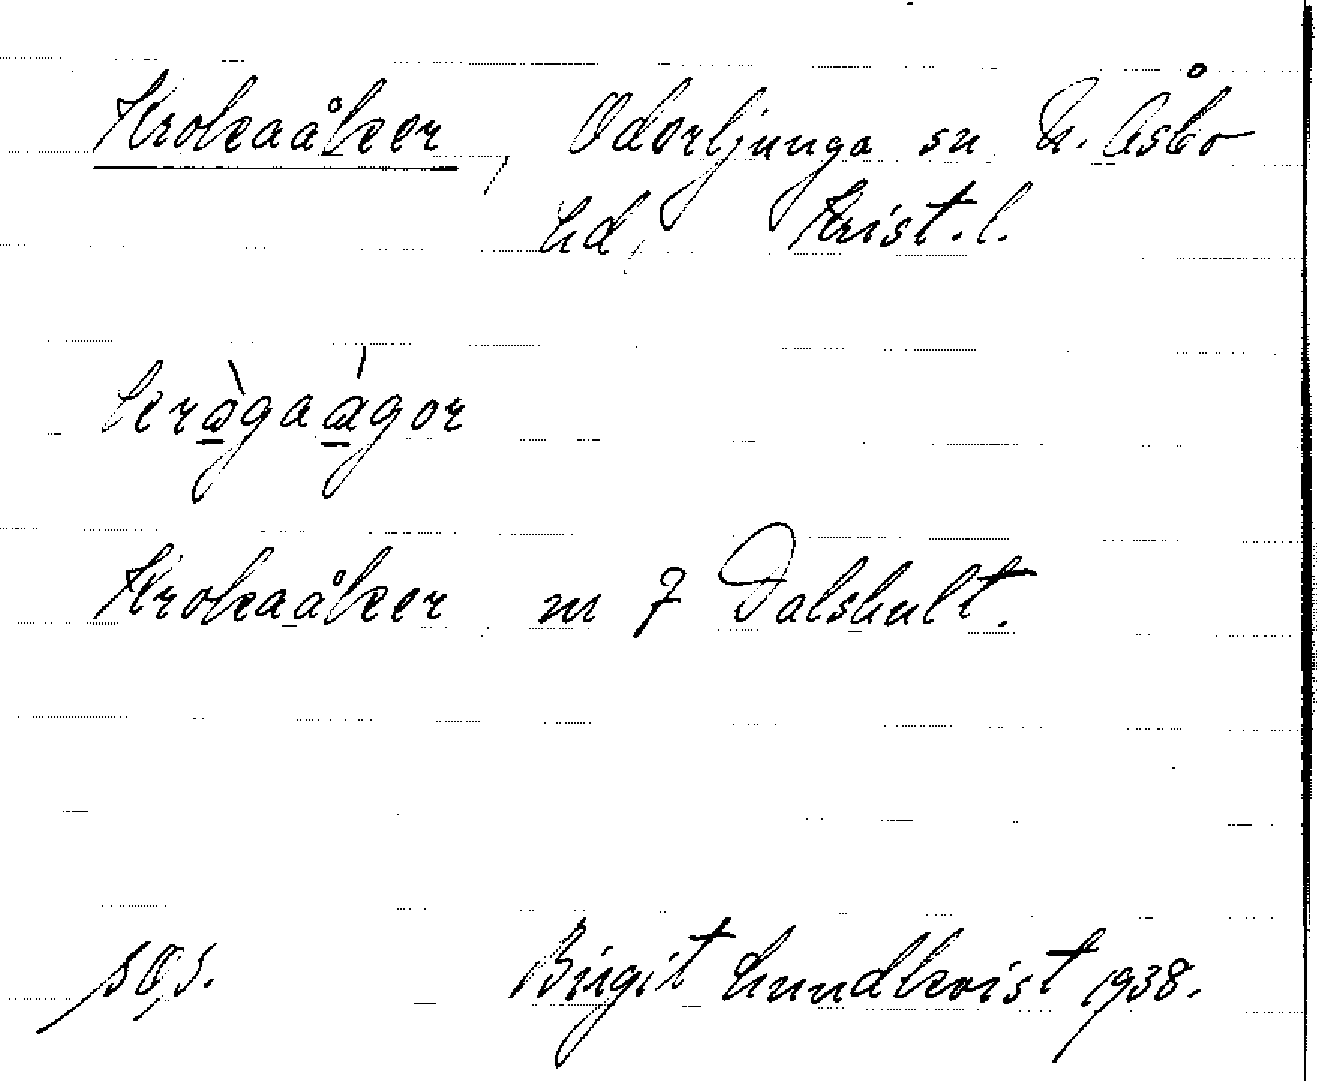 Krokaåker, Oderljunga sn N. Åsbo
hd, Krist. l.
krågaågor
Krokaåker nr 7 Dalshult.
Birgit Lundkvist 1938.